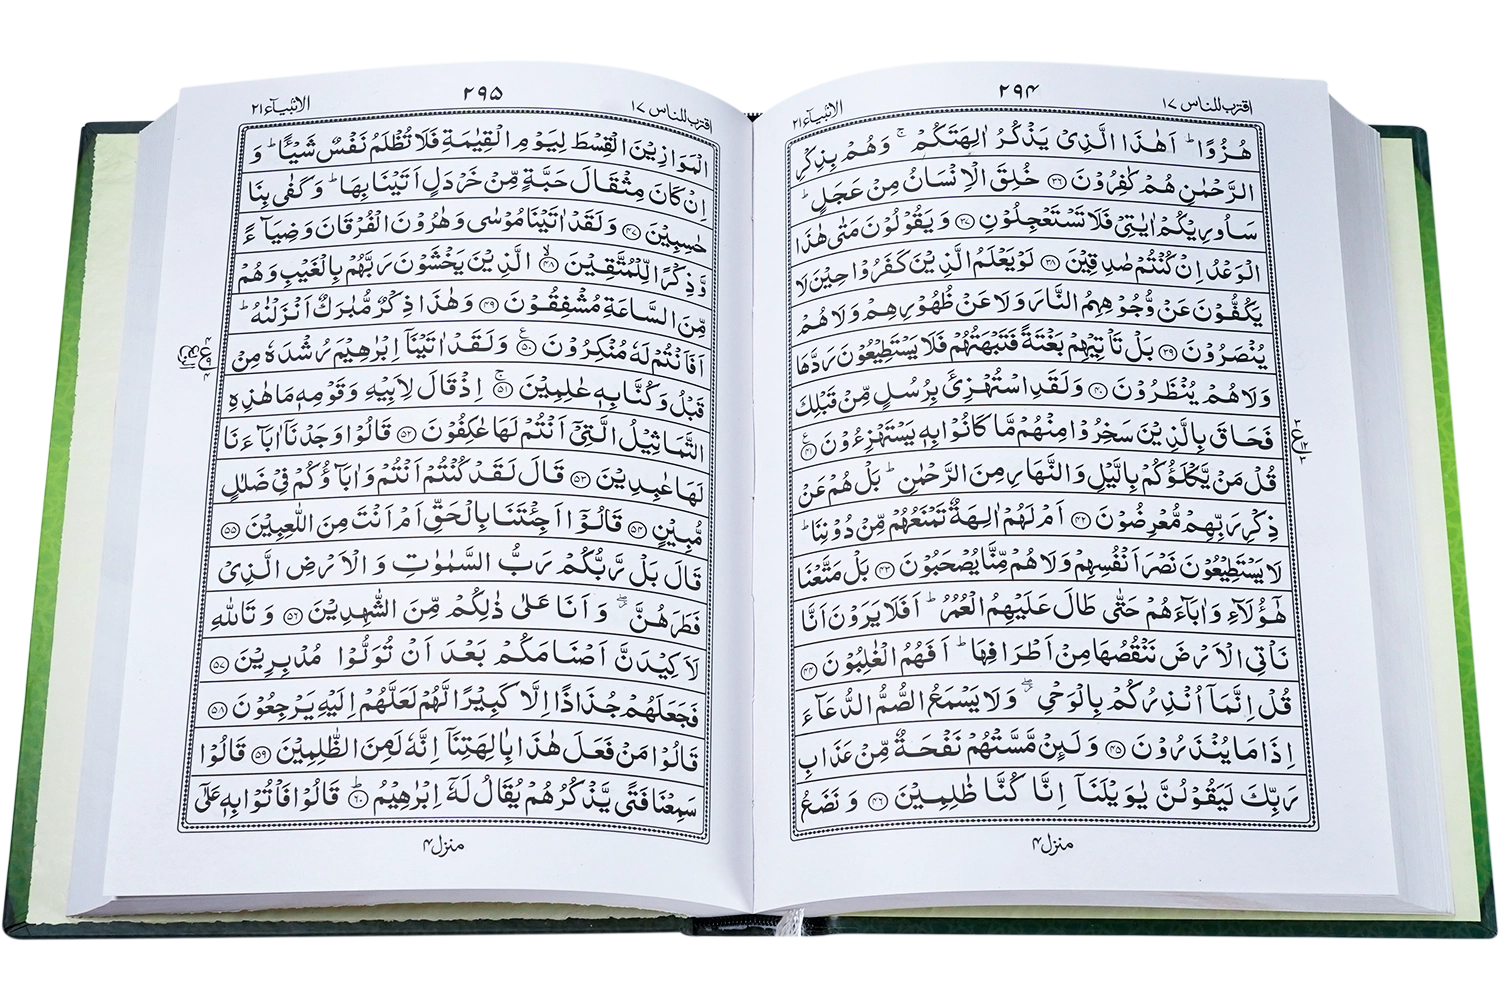 اقترب للناس ١٧
٢٩٤
الانبیآء ٢١
هُزُوًا ؕ اَهٰذَا الَّذِىْ يَذْكُرُ اٰلِهَتَكُمْ ۚ وَهُمْ بِذِكْرِ
الرَّحْمٰنِ هُمْ كٰفِرُوْنَ ﴿٣٦﴾ خُلِقَ الْاِنْسَانُ مِنْ عَجَلٍ ؕ
سَاُورِيْكُمْ اٰيٰتِىْ فَلَا تَسْتَعْجِلُوْنِ ﴿٣٧﴾ وَيَقُوْلُوْنَ مَتٰى هٰذَا
الْوَعْدُ اِنْ كُنْتُمْ صٰدِقِيْنَ ﴿٣٨﴾ لَوْ يَعْلَمُ الَّذِيْنَ كَفَرُوْا حِيْنَ لَا
يَكُفُّوْنَ عَنْ وُّجُوْهِهِمُ النَّارَ وَلَا عَنْ ظُهُوْرِهِمْ وَلَا هُمْ
يُنْصَرُوْنَ ﴿٣٩﴾ بَلْ تَاْتِيْهِمْ بَغْتَةً فَتَبْهَتُهُمْ فَلَا يَسْتَطِيْعُوْنَ رَدَّهَا
وَلَا هُمْ يُنْظَرُوْنَ ﴿٤٠﴾ وَلَقَدِ اسْتُهْزِئَ بِرُسُلٍ مِّنْ قَبْلِكَ
فَحَاقَ بِالَّذِيْنَ سَخِرُوْا مِنْهُمْ مَّا كَانُوْا بِهٖ يَسْتَهْزِءُوْنَ ﴿٤١﴾ ع
قُلْ مَنْ يَّكْلَؤُكُمْ بِالَّيْلِ وَالنَّهَارِ مِنَ الرَّحْمٰنِ ؕ بَلْ هُمْ عَنْ
ذِكْرِ رَبِّهِمْ مُّعْرِضُوْنَ ﴿٤٢﴾ اَمْ لَهُمْ اٰلِهَةٌ تَمْنَعُهُمْ مِّنْ دُوْنِنَا ؕ
لَا يَسْتَطِيْعُوْنَ نَصْرَ اَنْفُسِهِمْ وَلَا هُمْ مِّنَّا يُصْحَبُوْنَ ﴿٤٣﴾ بَلْ مَتَّعْنَا
هٰٓؤُلَآءِ وَاٰبَآءَهُمْ حَتّٰى طَالَ عَلَيْهِمُ الْعُمُرُ ؕ اَفَلَا يَرَوْنَ اَنَّا
نَاْتِى الْاَرْضَ نَنْقُصُهَا مِنْ اَطْرَافِهَا ؕ اَفَهُمُ الْغٰلِبُوْنَ ﴿٤٤﴾
قُلْ اِنَّمَآ اُنْذِرُكُمْ بِالْوَحْىِ ۖ وَلَا يَسْمَعُ الصُّمُّ الدُّعَآءَ
اِذَا مَا يُنْذَرُوْنَ ﴿٤٥﴾ وَلَئِنْ مَّسَّتْهُمْ نَفْحَةٌ مِّنْ عَذَابِ
رَبِّكَ لَيَقُوْلُنَّ يٰوَيْلَنَآ اِنَّا كُنَّا ظٰلِمِيْنَ ﴿٤٦﴾ وَنَضَعُ
منزل ٤
٣ ع ١٢ ٣
اقترب للناس ١٧
٢٩٥
الانبیآء ٢١
الْمَوَازِيْنَ الْقِسْطَ لِيَوْمِ الْقِيٰمَةِ فَلَا تُظْلَمُ نَفْسٌ شَيْـًٔا ؕ وَ
اِنْ كَانَ مِثْقَالَ حَبَّةٍ مِّنْ خَرْدَلٍ اَتَيْنَا بِهَا ؕ وَكَفٰى بِنَا
حٰسِبِيْنَ ﴿٤٧﴾ وَلَقَدْ اٰتَيْنَا مُوْسٰى وَهٰرُوْنَ الْفُرْقَانَ وَضِيَآءً
وَّذِكْرًا لِّلْمُتَّقِيْنَ ﴿٤٨﴾ۙ الَّذِيْنَ يَخْشَوْنَ رَبَّهُمْ بِالْغَيْبِ وَهُمْ
مِّنَ السَّاعَةِ مُشْفِقُوْنَ ﴿٤٩﴾ وَهٰذَا ذِكْرٌ مُّبٰرَكٌ اَنْزَلْنٰهُ ؕ
اَفَاَنْتُمْ لَهٗ مُنْكِرُوْنَ ﴿٥٠﴾ ع وَلَقَدْ اٰتَيْنَآ اِبْرٰهِيْمَ رُشْدَهٗ مِنْ
قَبْلُ وَكُنَّا بِهٖ عٰلِمِيْنَ ﴿٥١﴾ۚ اِذْ قَالَ لِاَبِيْهِ وَقَوْمِهٖ مَا هٰذِهِ
التَّمَاثِيْلُ الَّتِىْٓ اَنْتُمْ لَهَا عٰكِفُوْنَ ﴿٥٢﴾ قَالُوْا وَجَدْنَآ اٰبَآءَنَا
لَهَا عٰبِدِيْنَ ﴿٥٣﴾ قَالَ لَقَدْ كُنْتُمْ اَنْتُمْ وَاٰبَآؤُكُمْ فِىْ ضَلٰلٍ
مُّبِيْنٍ ﴿٥٤﴾ قَالُوْٓا اَجِئْتَنَا بِالْحَقِّ اَمْ اَنْتَ مِنَ اللّٰعِبِيْنَ ﴿٥٥﴾
قَالَ بَلْ رَّبُّكُمْ رَبُّ السَّمٰوٰتِ وَالْاَرْضِ الَّذِىْ
فَطَرَهُنَّ ۖ وَاَنَا عَلٰى ذٰلِكُمْ مِّنَ الشّٰهِدِيْنَ ﴿٥٦﴾ وَتَاللّٰهِ
لَاَكِيْدَنَّ اَصْنَامَكُمْ بَعْدَ اَنْ تُوَلُّوْا مُدْبِرِيْنَ ﴿٥٧﴾
فَجَعَلَهُمْ جُذٰذًا اِلَّا كَبِيْرًا لَّهُمْ لَعَلَّهُمْ اِلَيْهِ يَرْجِعُوْنَ ﴿٥٨﴾
قَالُوْا مَنْ فَعَلَ هٰذَا بِاٰلِهَتِنَآ اِنَّهٗ لَمِنَ الظّٰلِمِيْنَ ﴿٥٩﴾ قَالُوْا
سَمِعْنَا فَتًى يَّذْكُرُهُمْ يُقَالُ لَهٗٓ اِبْرٰهِيْمُ ﴿٦٠﴾ؕ قَالُوْا فَاْتُوْا بِهٖ عَلٰٓى
منزل ٤